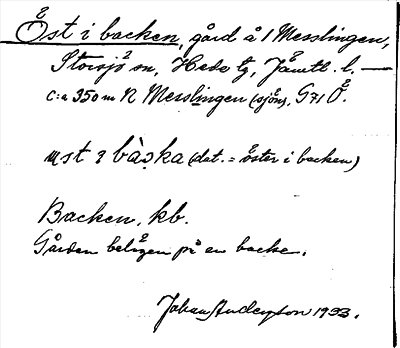 Öst i backen, gård å 1 Messlingen,
Storsjö sn, Hede tg, Jämtl. l. —
c:a 350 m N Messlingen (sjön), G71 Ö.
st i bàska (dat. = öster i backen)
Backen, kb.
Gården belägen på en backe.
Johan Anderson 1933.